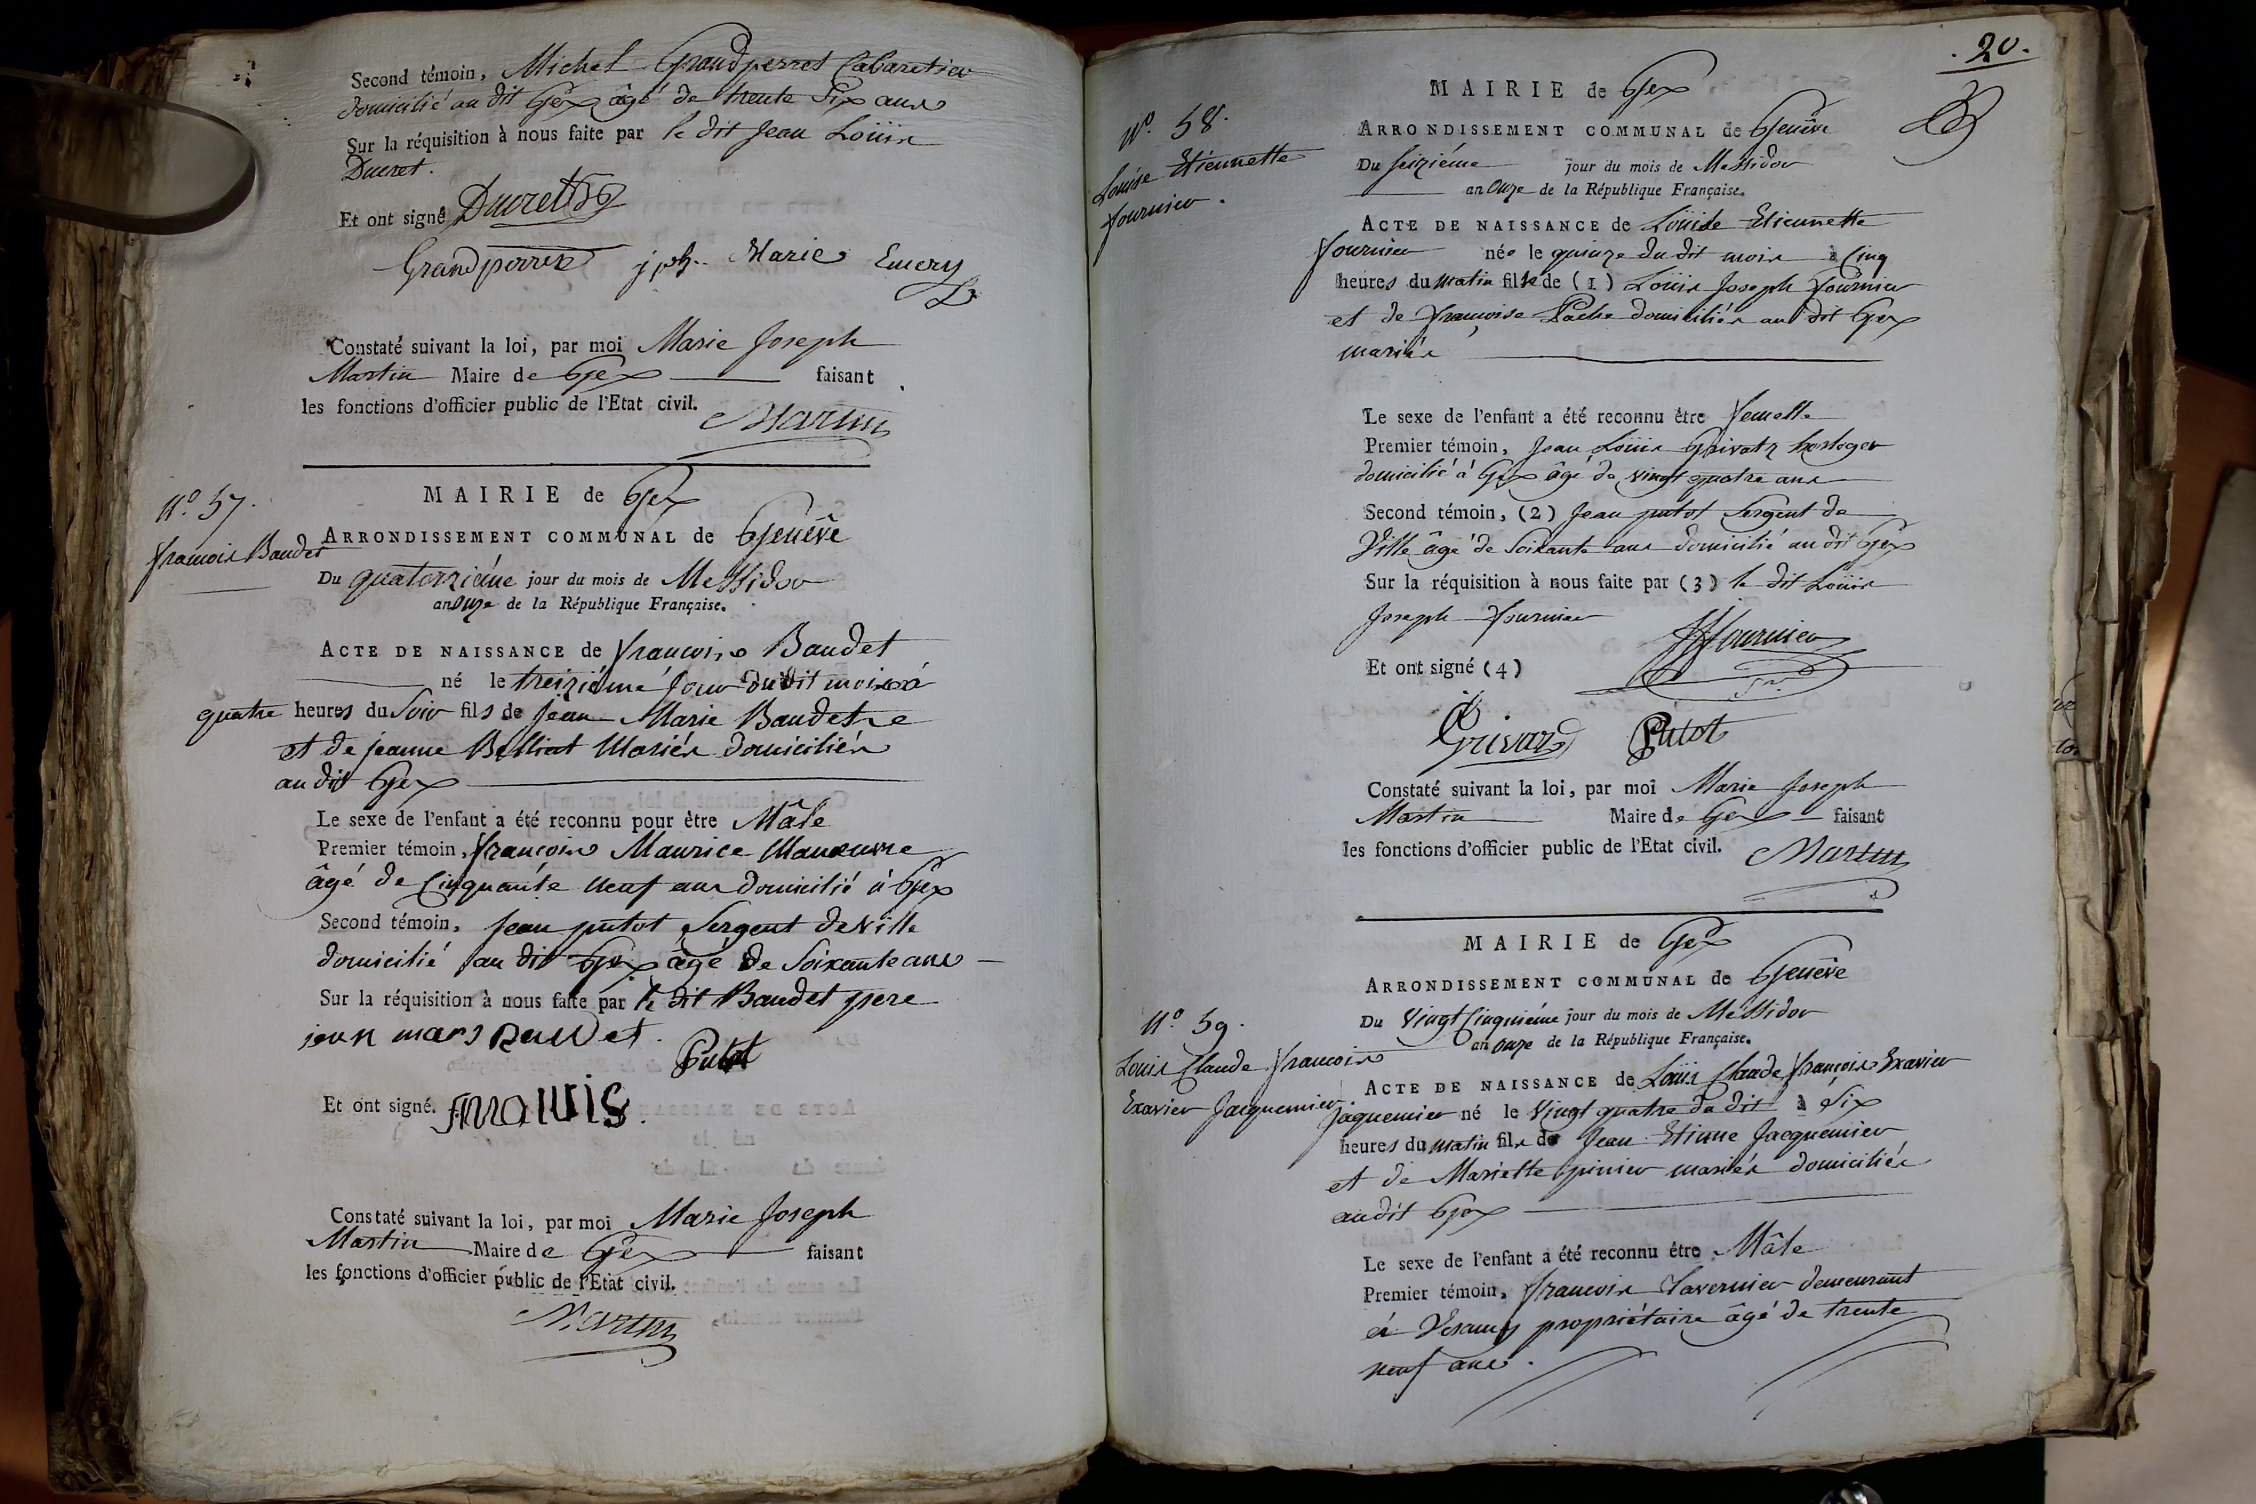 Second témoin, Michel Grandperret Cabaretier
domicilié au dit Gex âgé de trente Six ans
Sur la réquisition à nous faite par le dit Jean Loüis
Ducret.
Et ont signé Ducret
Grandperret jph Marie Emery
Constaté suivant la loi, par moi Marie Joseph
Martin Maire de Gex faisant
les fonctions d'officier public de l'Etat civil.
Martin
N.° 57.
francois Baudet
MAIRIE de Gex
ARRONDISSEMENT COMMUNAL de Genêve
Du quatorziéme jour du mois de Messidor
an Onze de la République Française.
ACTE DE NAISSANCE de françois Baudet
né le treiziéme jour du dit mois à
quatre heures du Soir fils de Jean Marie Baudet
et de jeanne Belliat Mariés domiciliés
au dit Gex
Le sexe de l'enfant a été reconnu pour être Mâle
Premier témoin, françois Maurice Manœuvre
âgé de Cinquante neuf ans domicilié à Gex
Second témoin, Jean putot Sergent de Ville
domicilié au dit Gex âgé de Soixante ans
Sur la réquisition à nous faite par le dit Baudet pere
Putot
Et ont signé.
Constaté suivant la loi, par moi Marie Joseph
Martin Maire de Gex faisant
les fonctions d'officier public de l'Etat civil.
Martin
. 20.
N.° 58.
Louise Etiennette
fournier.
MAIRIE de Gex
ARRONDISSEMENT COMMUNAL de Genêve
Du Seiziéme jour du mois de Messidor
an Onze de la République Française.
ACTE DE NAISSANCE de Loüise Etiennette
fournier née le quinze du dit mois à Cinq
heures du matin fille de (1) Loüis Joseph fournier
et de françoise Pache domiciliés au dit Gex
mariés
Le sexe de l'enfant a été reconnu être femelle
Premier témoin, Jean Loüis Grivatz horloger
domicilié à Gex âgé de vingt quatre ans
Second témoin, (2) Jean putot Sergent de
Ville âgé de Soixante ans domicilié au dit Gex
Sur la réquisition à nous faite par (3) le dit Loüis
Joseph fournier
fournier
Et ont signé (4)
Grivaz Putot
Constaté suivant la loi, par moi Marie Joseph
Martin Maire de Gex faisant
les fonctions d'officier public de l'Etat civil.
Martin
N.° 59.
Louis Claude francois
Exavier Jacquemier.
MAIRIE de Gex
ARRONDISSEMENT COMMUNAL de Genêve
Du Vingt Cinquiéme jour du mois de Messidor
an Onze de la République Française.
ACTE DE NAISSANCE de Loüis Claude françois Exavier
Jaquemier né le Vingt quatre du dit à Six
heures du matin fils de Jean Etienne Jacquemier
et de Mariette Grinier mariés domiciliés
audit Gex
Le sexe de l'enfant a été reconnu être Mâle
Premier témoin, francois Tavernier demeurant
à Vesancy propriétaire âgé de trente
neuf ans.